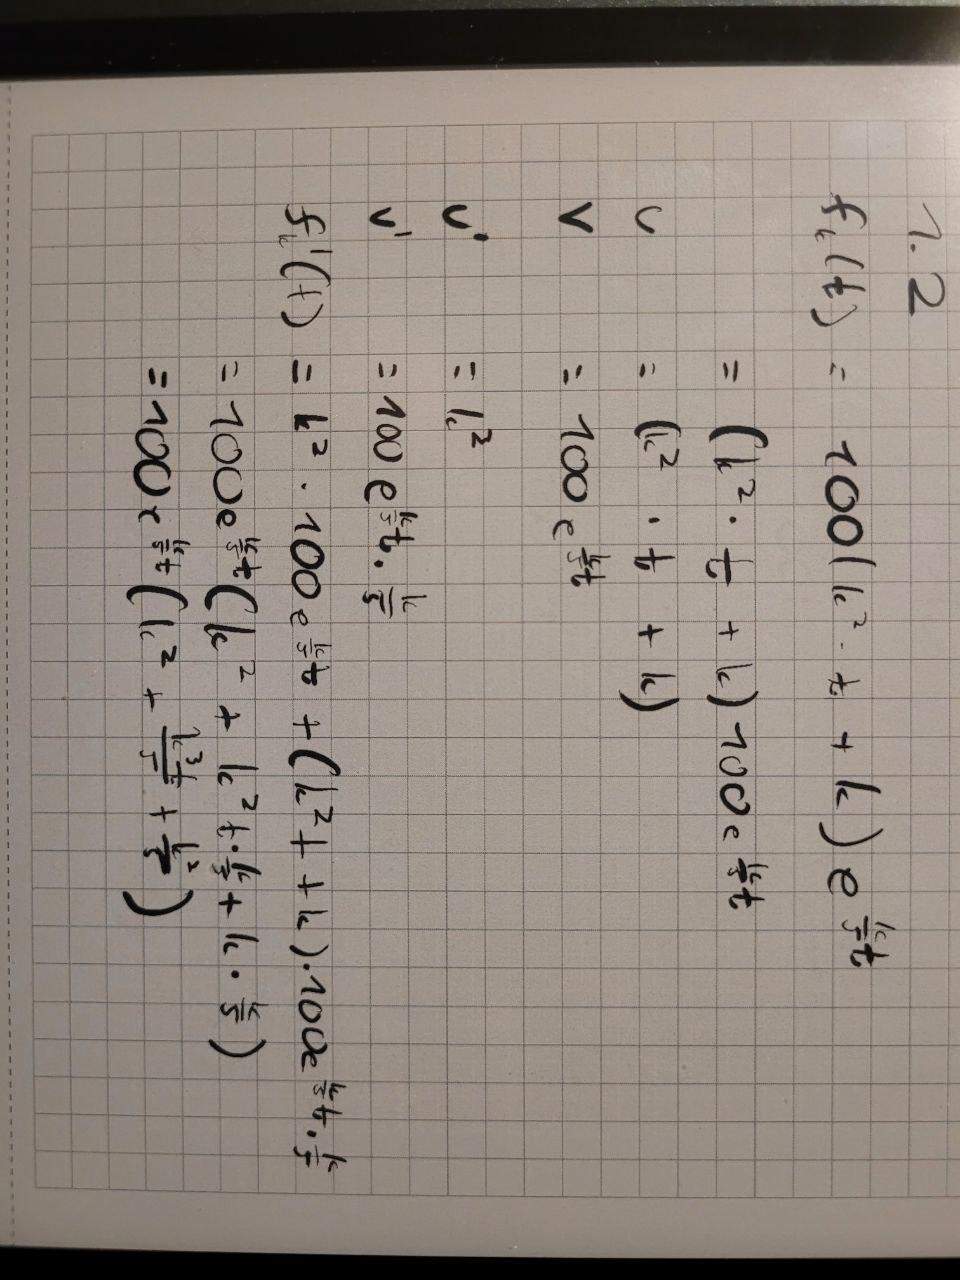 1.2
f_k(t) = 100(k² · t + k) e^{k/5 t}
= (k² · t + k) 100 e^{k/5 t}
u = (k² · t + k)
v = 100 e^{k/5 t}
u' = k²
v' = 100 e^{k/5 t} · k/5
f_k'(t) = k² · 100 e^{k/5 t} + (k² t + k) · 100e^{k/5 t} · k/5
= 100e^{k/5 t} (k² + k² t · k/5 + k · k/5)
= 100e^{k/5 t} (k² + k³t/5 + k²/5)